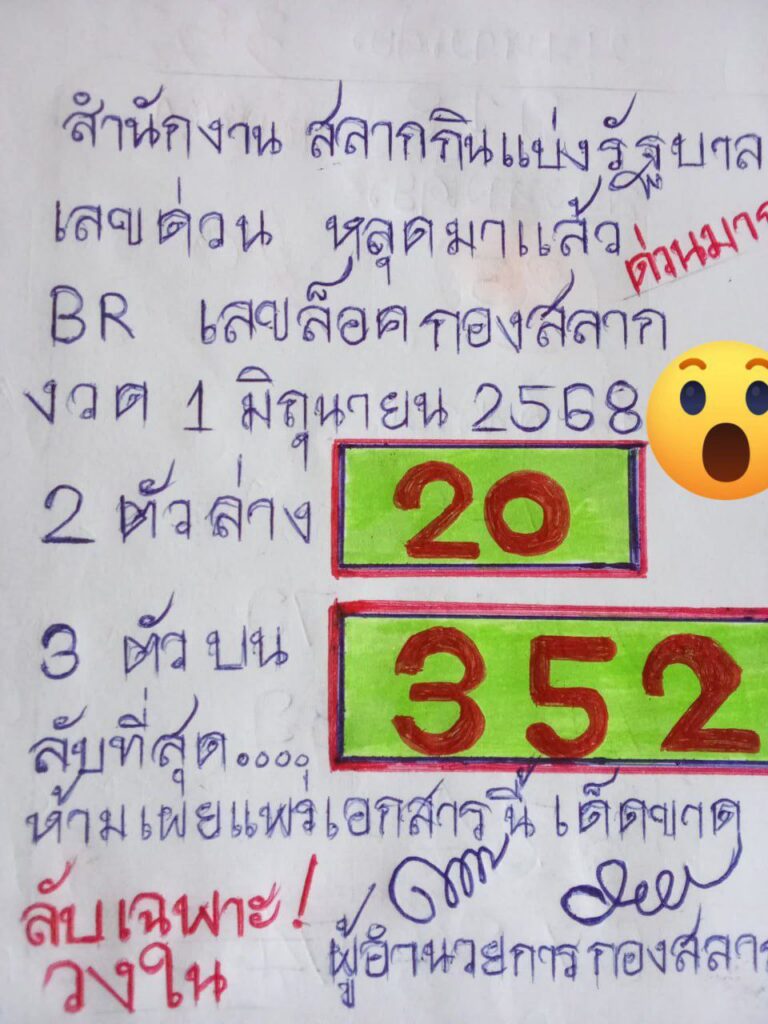 สำนักงาน สลากกินแบ่งรัฐบาล
เลขด่วน หลุดมาแล้ว
ด่วนมาก
BR เลขล็อค กองสลาก
งวด 1 มิถุนายน 2568
2 ตัวล่าง 20
3 ตัวบน 352
ลับที่สุด....
ห้ามเผยแพร่เอกสารนี้ เด็ดขาด
ลับเฉพาะ!
วงใน
ผู้อำนวยการกองสลาก